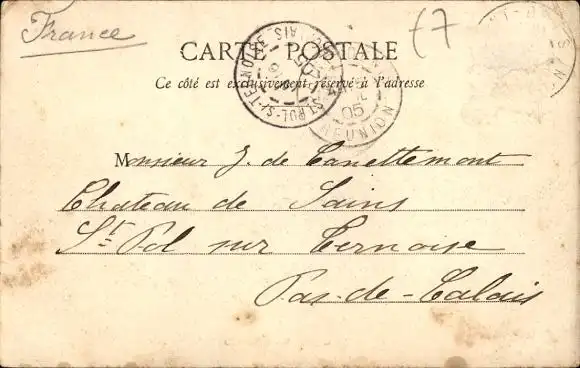 France
67
CARTE POSTALE
Ce côté est exclusivement réservé à l'adresse
ST-POL-S-TERNOISE
PAS-DE-CALAIS
05
REUNION
Monsieur J. de Canettemont
Chateau de Sains
St Pol sur Ternoise
Pas-de-Calais